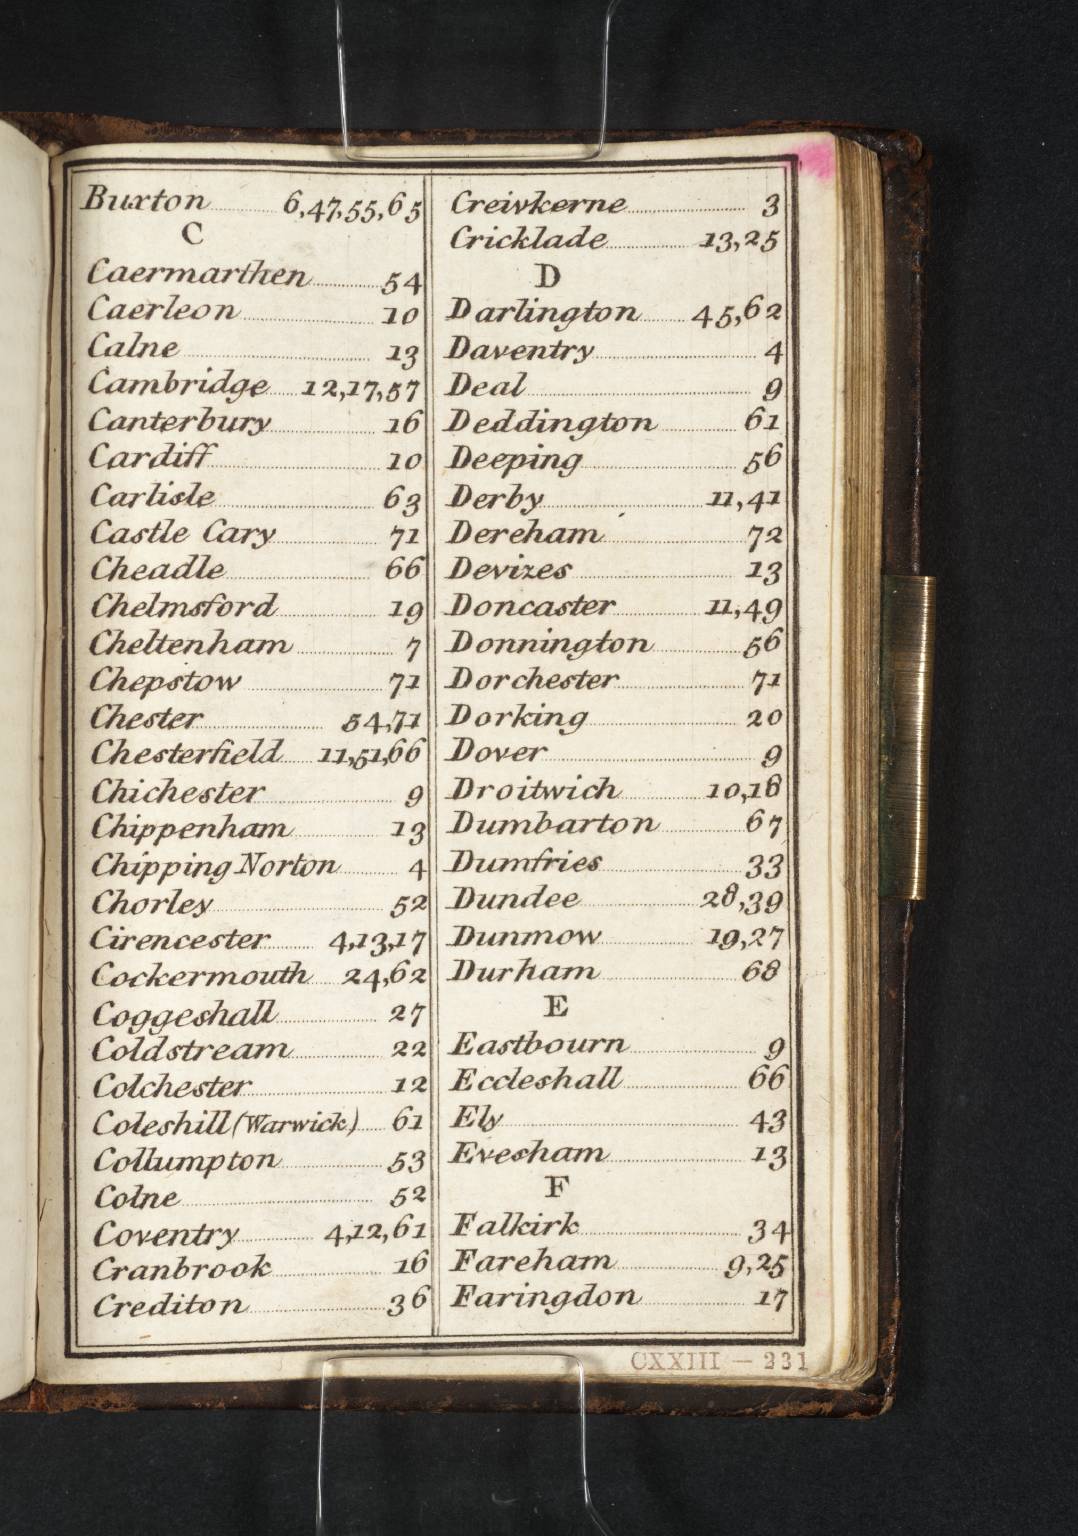 Buxton 6,47,55,65
C
Caermarthen 54
Caerleon 10
Calne 13
Cambridge 12,17,57
Canterbury 16
Cardiff 10
Carlisle 63
Castle Cary 71
Cheadle 66
Chelmsford 19
Cheltenham 7
Chepstow 71
Chester 54,71
Chesterfield 11,51,66
Chichester 9
Chippenham 13
Chipping Norton 4
Chorley 52
Cirencester 4,13,17
Cockermouth 24,62
Coggeshall 27
Coldstream 22
Colchester 12
Coleshill (Warwick) 61
Collumpton 53
Colne 52
Coventry 4,12,61
Cranbrook 16
Crediton 36
Creivkerne 3
Cricklade 13,25
D
Darlington 45,62
Daventry 4
Deal 9
Deddington 61
Deeping 56
Derby 11,41
Dereham 72
Devizes 13
Doncaster 11,49
Donnington 56
Dorchester 71
Dorking 20
Dover 9
Droitwich 10,18
Dumbarton 67
Dumfries 33
Dundee 28,39
Dunmow 19,27
Durham 68
E
Eastbourn 9
Eccleshall 66
Ely 43
Evesham 13
F
Falkirk 34
Fareham 9,25
Faringdon 17
CXXIII — 231